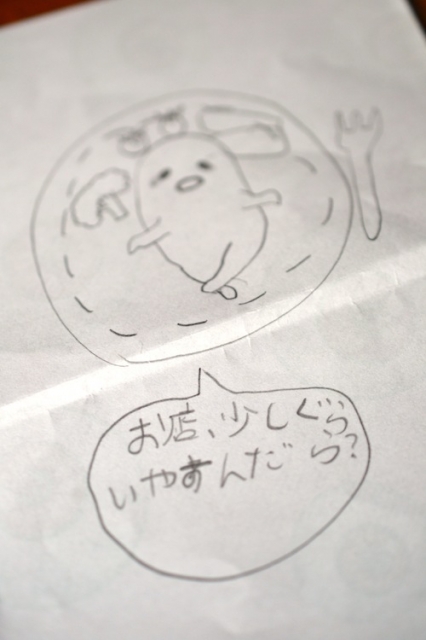 お店、少しぐら
いやすんだら?